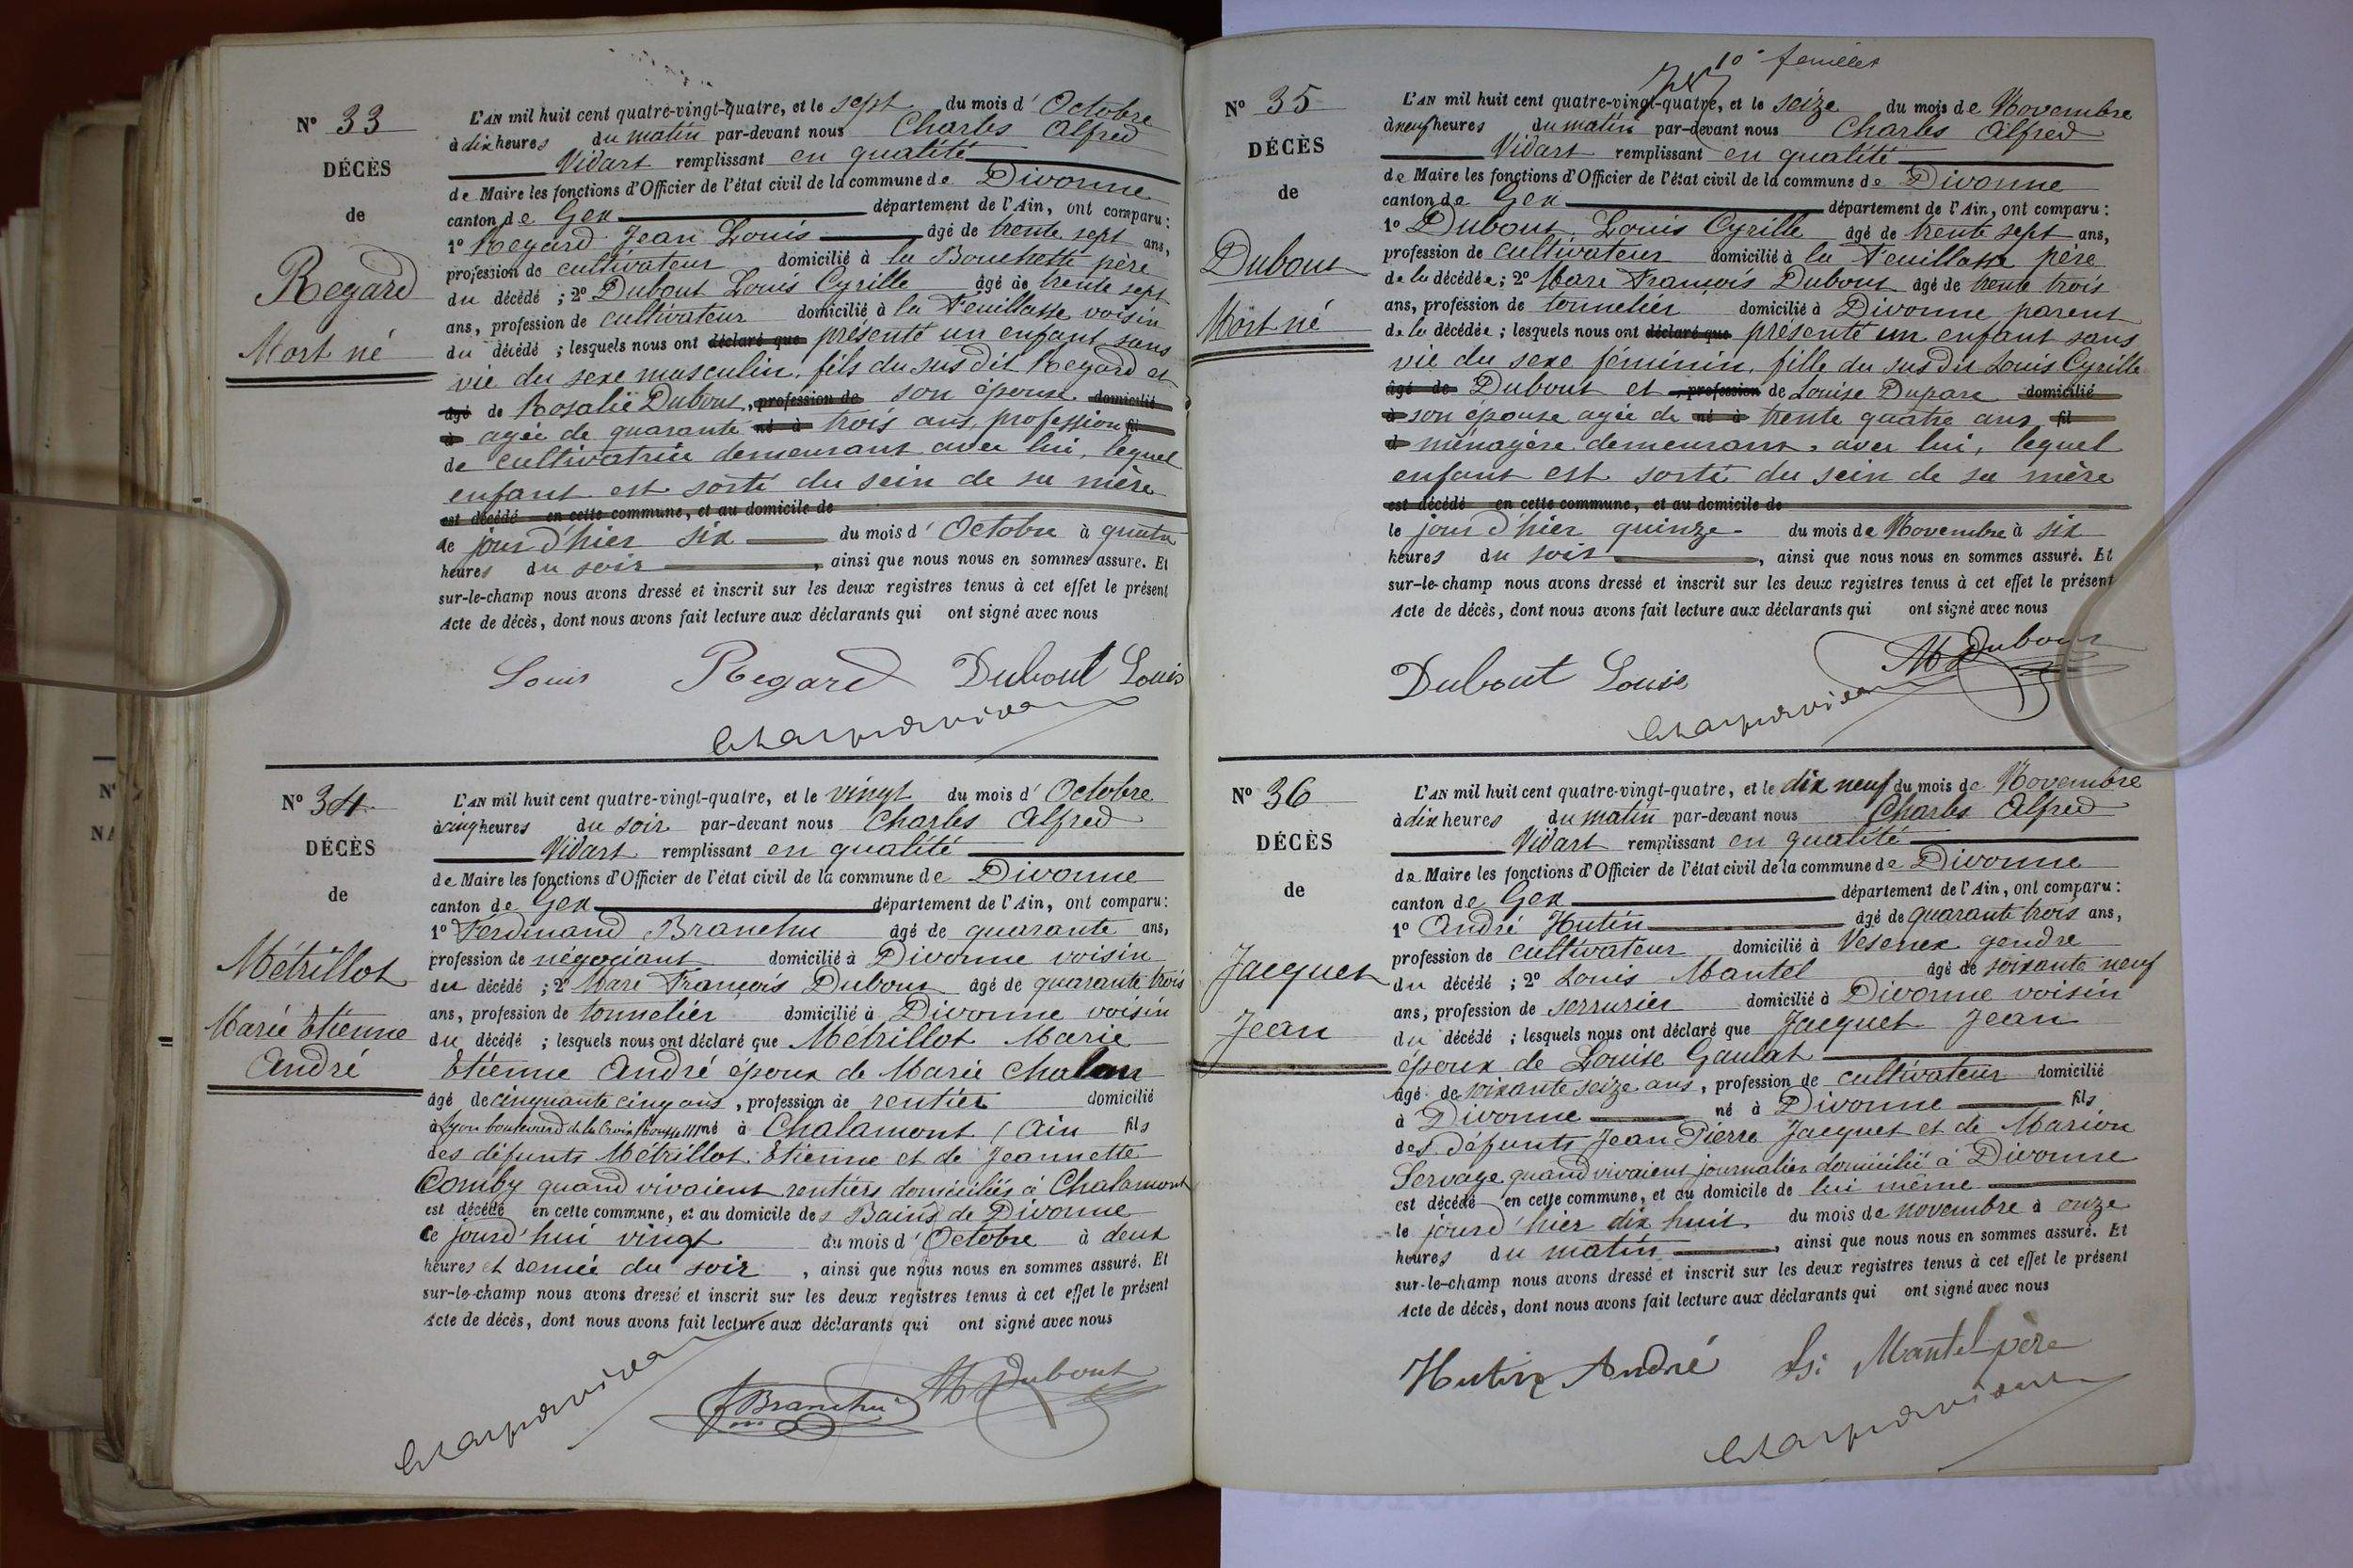 N° 33
DÉCÈS
de
Regard
Mort né
L'AN mil huit cent quatre-vingt-quatre, et le sept du mois d' Octobre
à dix heures du matin par-devant nous Charles Alfred
Vidart remplissant en qualité
de Maire les fonctions d'Officier de l'état civil de la commune de Divonne
canton de Gex département de l'Ain, ont comparu:
1° Regard Jean Louis âgé de trente sept ans,
profession de cultivateur domicilié à la Bouchette père
du décédé ; 2° Dubout Louis Cyrille âgé de trente sept
ans, profession de cultivateur domicilié à la Feuillasse voisin
du décédé ; lesquels nous ont déclaré que présenté un enfant sans
vie du sexe masculin, fils du sus dit Regard et
âgé de Rosalie Dubout, profession de son épouse domicilié
à agée de quarante né à trois ans, profession fil
de cultivatrice demeurant avec lui, lequel
enfant est sorti du sein de sa mère
est décédé en cette commune, et au domicile de
le jour d'hier six du mois d' Octobre à quatre
heures du soir, ainsi que nous nous en sommes assuré. Et
sur-le-champ nous avons dressé et inscrit sur les deux registres tenus à cet effet le présent
Acte de décès, dont nous avons fait lecture aux déclarants qui ont signé avec nous
Louis Regard Dubout Louis
N° 34
DÉCÈS
de
Métrillot
Marie Etienne
André
L'AN mil huit cent quatre-vingt-quatre, et le vingt du mois d' Octobre
à cinq heures du soir par-devant nous Charles Alfred
Vidart remplissant en qualité
de Maire les fonctions d'Officier de l'état civil de la commune de Divonne
canton de Gex département de l'Ain, ont comparu:
1° Ferdinand Branchu âgé de quarante ans,
profession de négociant domicilié à Divonne voisin
du décédé ; 2° Marc François Dubout âgé de quarante trois
ans, profession de tonnelier domicilié à Divonne voisin
du décédé ; lesquels nous ont déclaré que Métrillot Marie
Etienne André époux de Marie
âgé de cinquante cinq ans, profession de rentier domicilié
à Lyon boulevard de la Croix Rousse né à Chalamont (Ain fils
des défunts Métrillot Etienne et de Jeannette
Comby quand vivaient rentiers domiciliés à Chalamont
est décédé en cette commune, et au domicile des Bains de Divonne
ce jourd'hui vingt du mois d' Octobre à deux
heures et demie du soir, ainsi que nous nous en sommes assuré. Et
sur-le-champ nous avons dressé et inscrit sur les deux registres tenus à cet effet le présent
Acte de décès, dont nous avons fait lecture aux déclarants qui ont signé avec nous
F Branchu M Dubout
10e feuillet
N° 35
DÉCÈS
de
Dubout
Mort né
L'AN mil huit cent quatre-vingt-quatre, et le seize du mois de Novembre
à neuf heures du matin par-devant nous Charles Alfred
Vidart remplissant en qualité
de Maire les fonctions d'Officier de l'état civil de la commune de Divonne
canton de Gex département de l'Ain, ont comparu:
1° Dubout Louis Cyrille âgé de trente sept ans,
profession de cultivateur domicilié à la Feuillasse père
de la décédée ; 2° Marc François Dubout âgé de trente trois
ans, profession de tonnelier domicilié à Divonne parent
de la décédée ; lesquels nous ont déclaré que présenté un enfant sans
vie du sexe feminin, fille du sus dit Louis Cyrille
âgé de Dubout et profession de Louise Duparc domicilié
à son épouse agée de né à trente quatre ans fil
d ménagère demeurant avec lui, lequel
enfant est sorti du sein de sa mère
est décédé en cette commune, et au domicile de
le jour d'hier quinze du mois de Novembre à six
heures du soir, ainsi que nous nous en sommes assuré. Et
sur-le-champ nous avons dressé et inscrit sur les deux registres tenus à cet effet le présent
Acte de décès, dont nous avons fait lecture aux déclarants qui ont signé avec nous
Dubout Louis M Dubout
N° 36
DÉCÈS
de
Jacquet
Jean
L'AN mil huit cent quatre-vingt-quatre, et le dix neuf du mois de Novembre
à dix heures du matin par-devant nous Charles Alfred
Vidart remplissant en qualité
de Maire les fonctions d'Officier de l'état civil de la commune de Divonne
canton de Gex département de l'Ain, ont comparu:
1° André Hutin âgé de quarante trois ans,
profession de cultivateur domicilié à Vesenex gendre
du décédé ; 2° Louis Mantel âgé de soixante neuf
ans, profession de serrurier domicilié à Divonne voisin
du décédé ; lesquels nous ont déclaré que Jacquet Jean
époux de Louise
âgé de soixante seize ans, profession de cultivateur domicilié
à Divonne né à Divonne fils
des défunts Jean Pierre Jacquet et de Marion
Servage quand vivaient journalier domicilié à Divonne
est décédé en cette commune, et au domicile de lui même
le jourd'hier dix huit du mois de novembre à onze
heures du matin, ainsi que nous nous en sommes assuré. Et
sur-le-champ nous avons dressé et inscrit sur les deux registres tenus à cet effet le présent
Acte de décès, dont nous avons fait lecture aux déclarants qui ont signé avec nous
Hutin André Ls. Mantel père